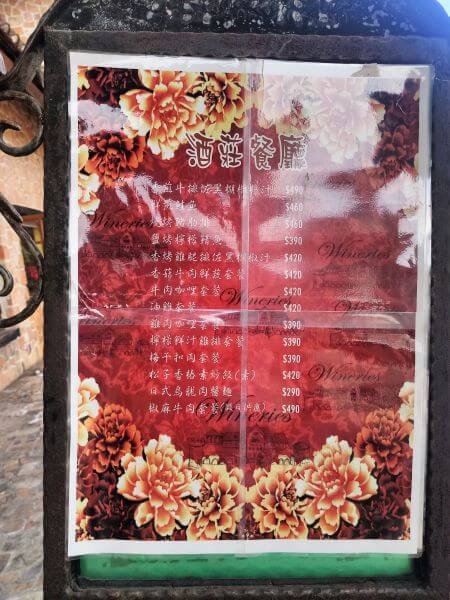 酒莊餐廳
香煎牛排佐黑胡椒汁 $490
鮮魚 $460
烤豬肋排 $460
鹽烤檸檬鯖魚 $390
香烤雞腿排佐黑胡椒汁 $420
香菇牛肉鮮蔬套餐 $420
牛肉咖哩套餐 $420
油雞套餐 $420
雞肉咖哩套餐 $390
檸檬鮮汁雞排套餐 $390
梅干扣肉套餐 $390
松子香椿素炒飯(素) $420
日式烏龍肉醬麵 $290
椒麻牛肉套餐(假日供應) $490
Wineries
Wineries
Wineries
Wineries
Wineries